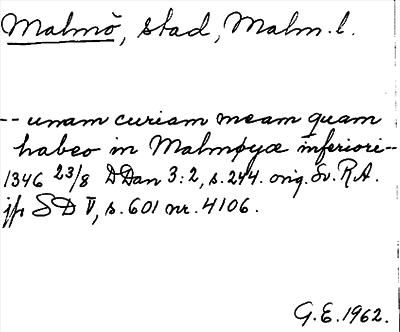 Malmö, stad, Malm.l.
-- unam curiam meam quam
habeo in Malmøyæ inferiori --
1346 23/8 DDan 3:2, s.244. orig. Sv. R.A.
jfr SD V, s.601 nr. 4106.
G.E.1962.